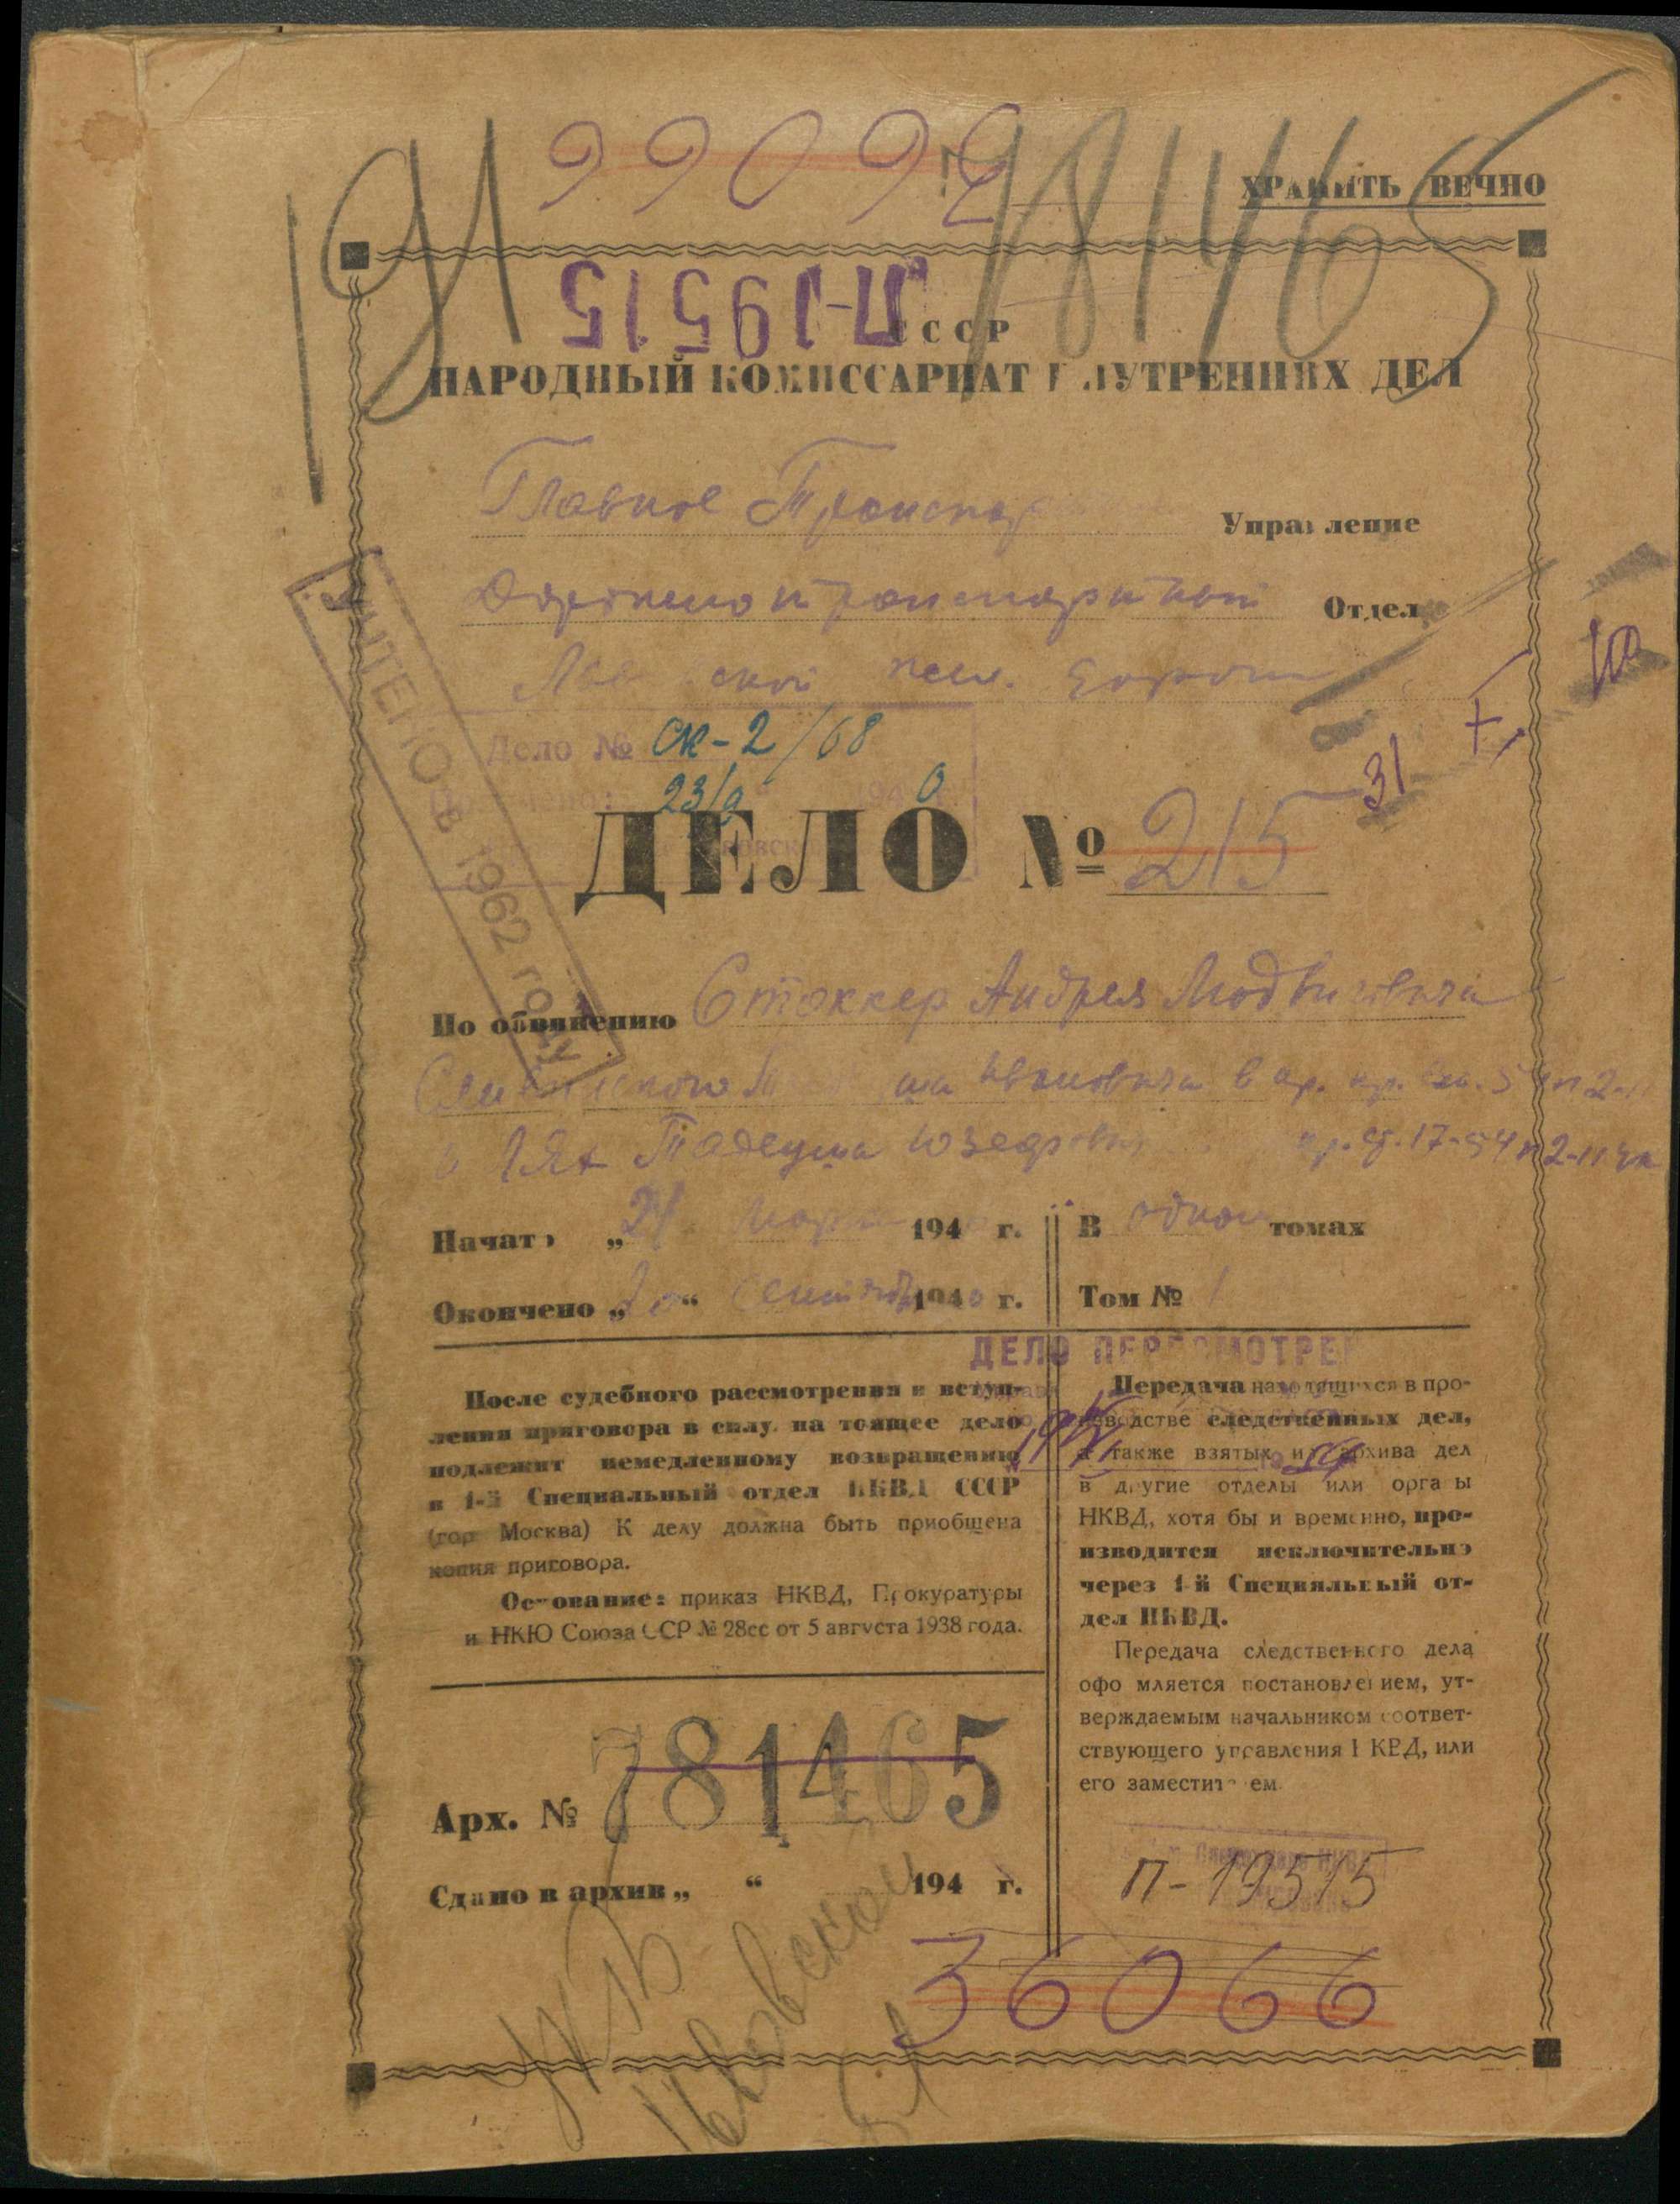 36066
781465
ХРАНИТЬ ВЕЧНО
П-19515
СССР
НАРОДНЫЙ КОМИССАРИАТ ВНУТРЕННИХ ДЕЛ
Главное Транспор Управление
Дорожно транспортный Отдел
ской жел. дороги
УЧТЕНО в 1962 году
Дело № СК-2/68
23/9 1940
31
ДЕЛО № 215
По обвинению Стоккер Андрея Людвиговича
Ивановича в пр. пр. ст. 54 п 2-11
и Лях Тадеуша Юзефови пр. ст. 17-54 п 2-11 ук
Начато „21 марта 194 г.
В одном томах
Окончено „20“ сентября 1940 г.
Том № 1
ДЕЛО ПЕРЕСМОТРЕ
После судебного рассмотрения и вступ-
ления приговора в силу, настоящее дело
подлежит немедленному возвращению
в 1-й Специальный отдел НКВД СССР
(гор. Москва) К делу должна быть приобщена
копия приговора.
Основание: приказ НКВД, Прокуратуры
и НКЮ Союза ССР № 28сс от 5 августа 1938 года.
Передача находящихся в про-
изводстве следственных дел,
а также взятых из архива дел
в другие отделы или органы
НКВД, хотя бы и временно, про-
изводится исключительно
через 1-й Специальный от-
дел НКВД.
Передача следственного дела
оформляется постановлением, ут-
верждаемым начальником соответ-
ствующего управления НКВД, или
его заместителем.
Арх. № 781465
Сдано в архив „ “ 194 г.
П-19515
36066
Львовской